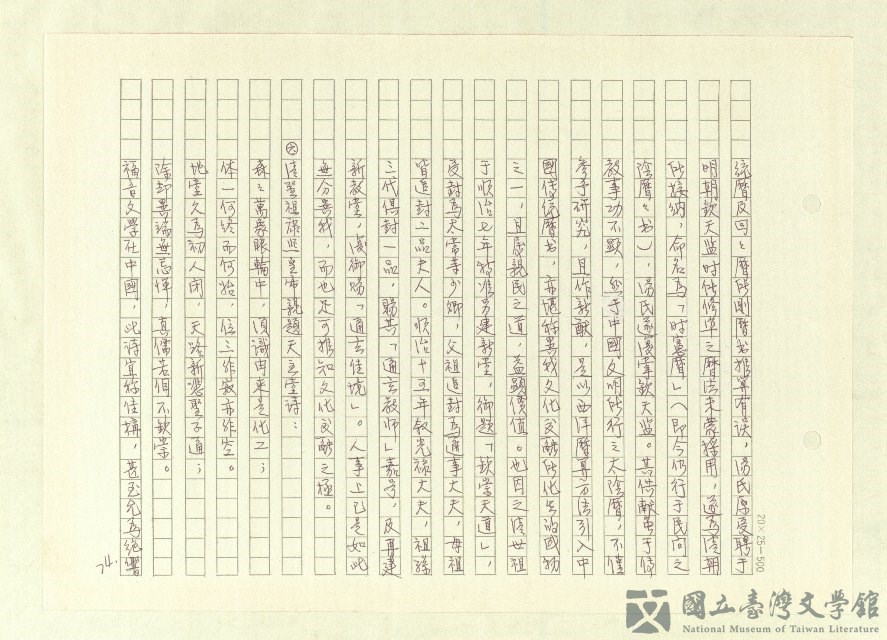 統曆及回々曆所刪曆書推算有誤，湯氏原受聘于
明朝欽天監時所修革之曆法未蒙採用，遂為清朝
所接納，命名為「時憲曆」（即今仍行于民间之
陰曆々书），湯氏遂復掌欽天监。其供献虽于傳
教事功不顕，然于中國文明所行之太陰曆，不僅
參予研究，且作新献，是以西洋曆算方法引入中
國傳統曆书，亦堪称異我文化交融所化生的國物
之一，且属親民之道，益顕價值。也因之清世祖
于順治七年特准另建新堂，御題「欽崇天道」，
受封為太常寺少卿，父祖追封為通奉大夫，母祖
皆追封二品夫人。順治十五年叙光禄大夫，祖孫
三代俱封一品，賜其「通玄教师」嘉号，及再建
新教堂，復御賜「通玄佳境」。人事上已是如此
無分異我，而也足可推知文化交融之極。
清聖祖康熙皇帝親題天主堂诗：
森々萬象眼輪中，須識由来是化工；
体一何终而何始，位三非寂亦非空。
地堂久為初人闭，天路新憑聖子通；
除却異端無忌憚，真儒若個不欽崇。
福音文學在中國，此诗宜称佳構，甚至允為绝響
74.
20×25=500
國立臺灣文學館
National Museum of Taiwan Literature